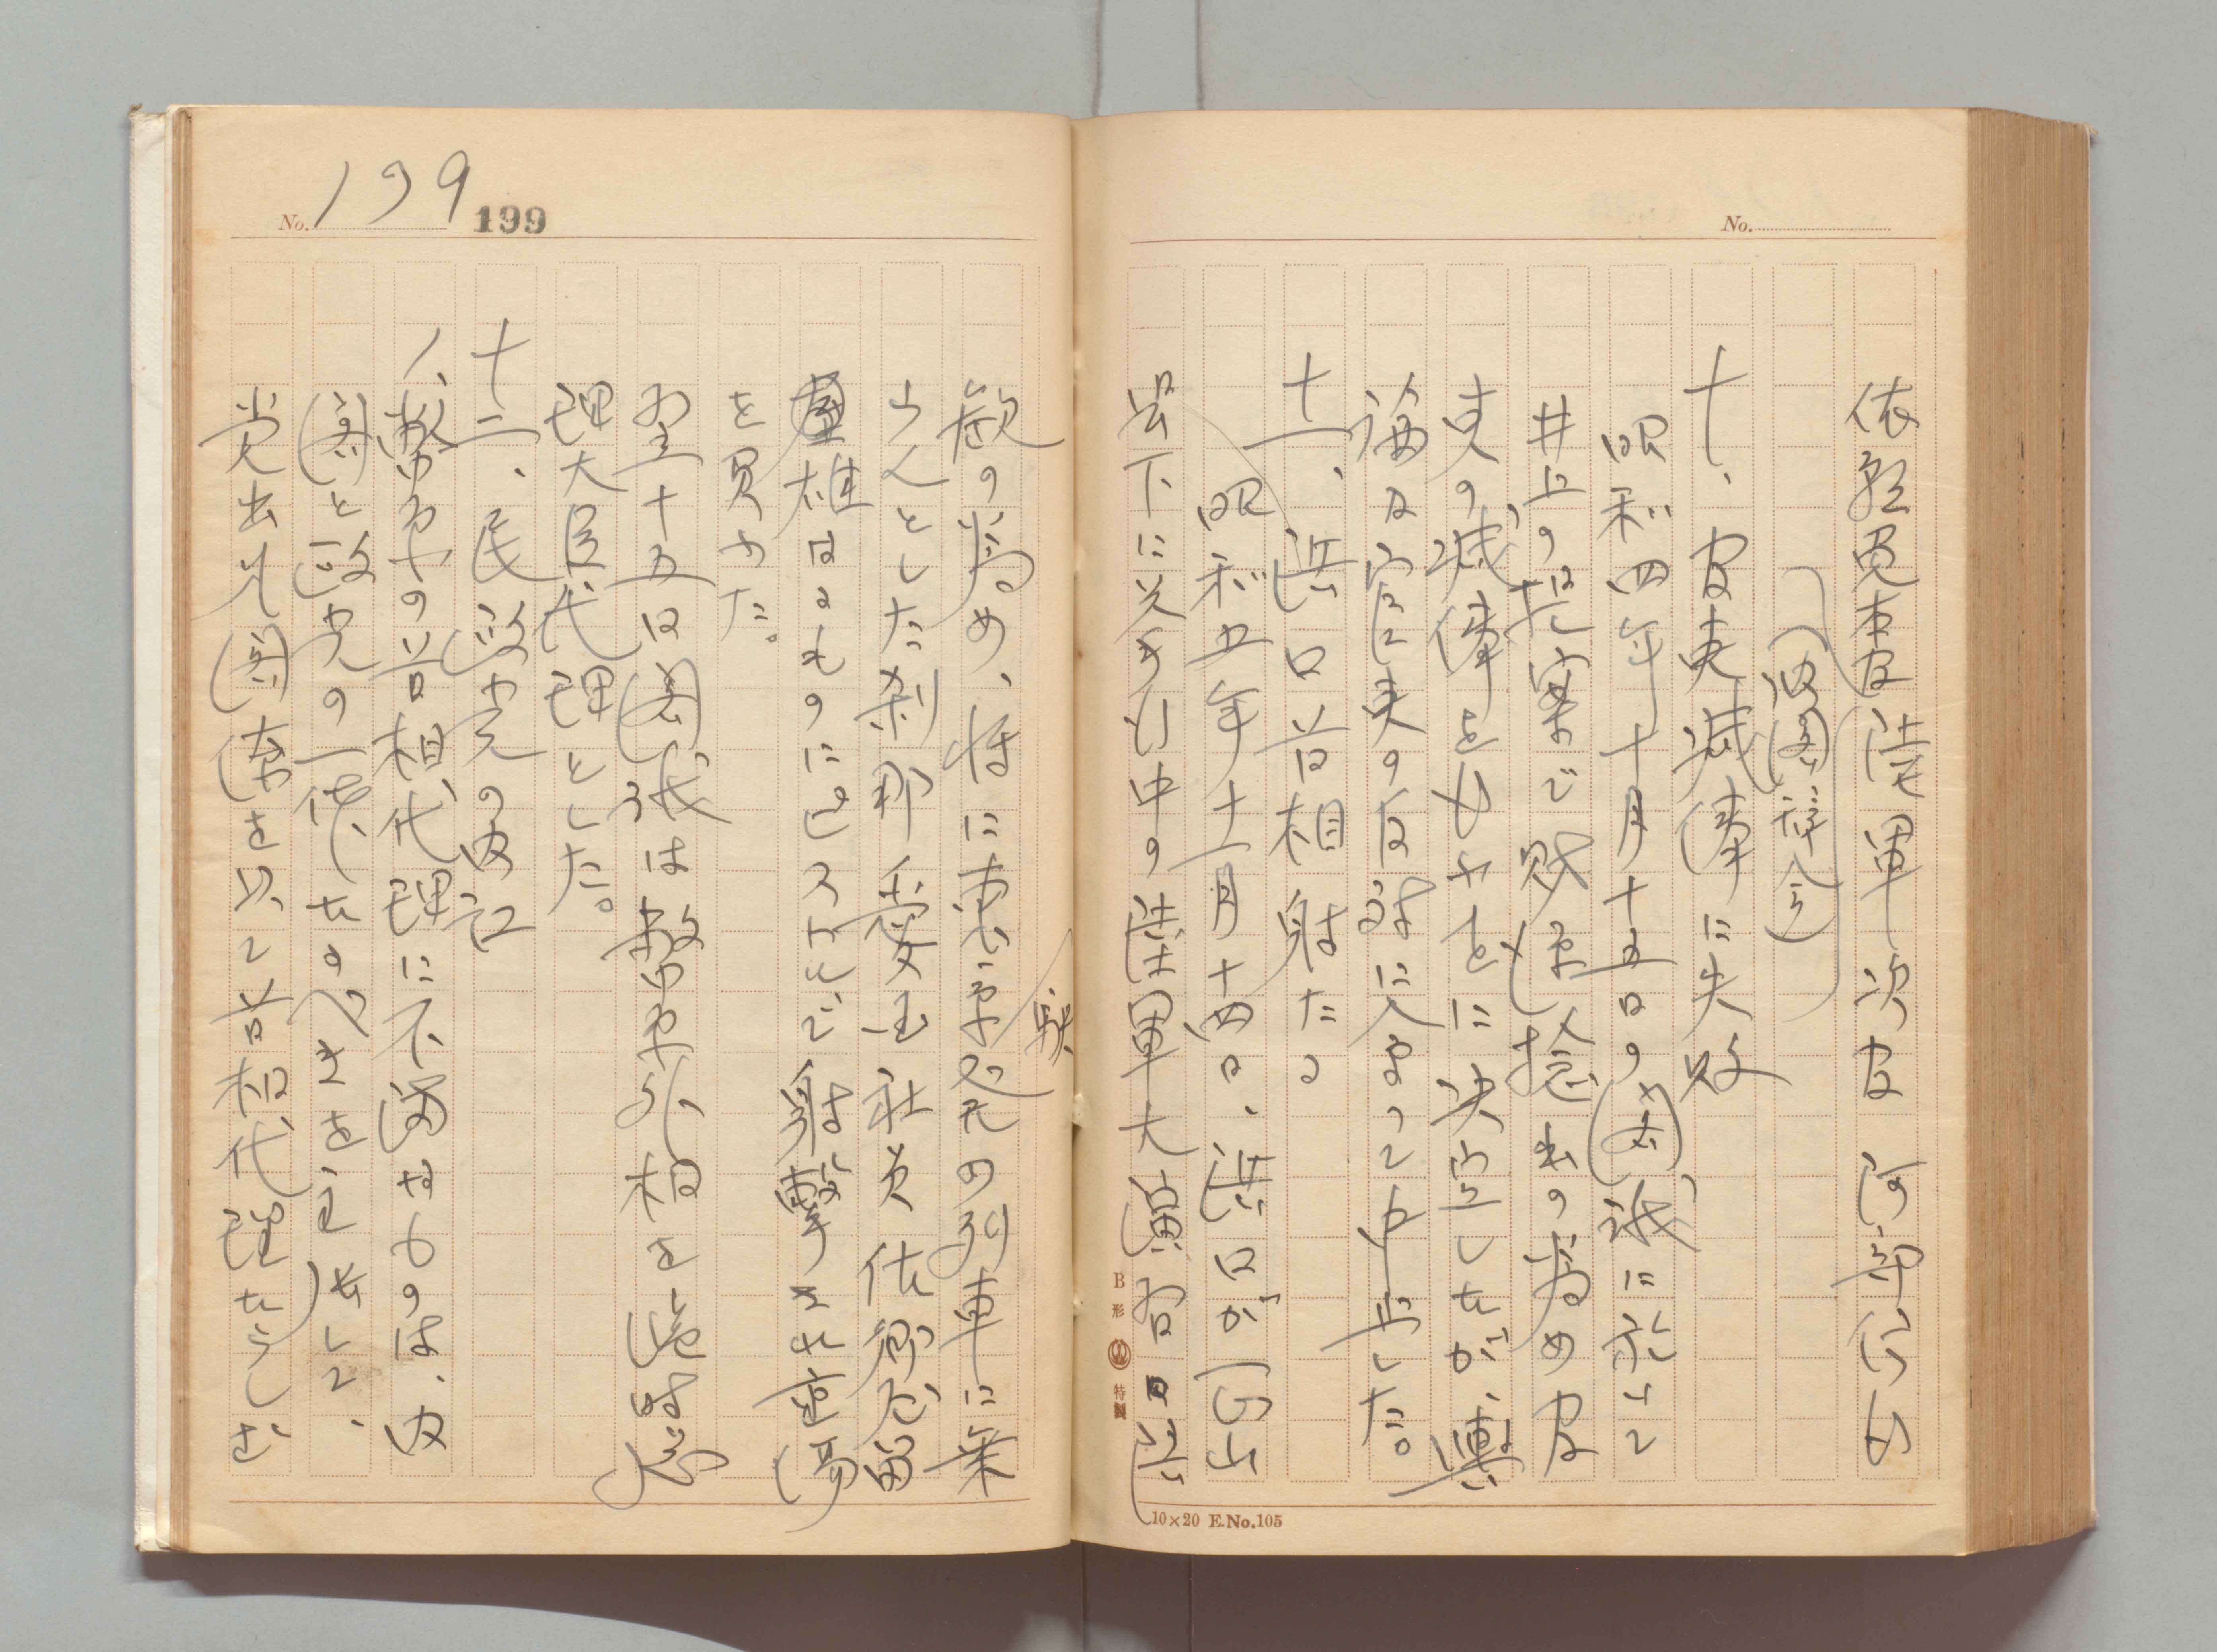 No.
依願免本官 陸軍次官 阿部信行
(内閣辞令)
十、官吏減俸に失敗
昭和四年十月十五日の閣議に於て
井上の提案で財源捻出の為め官
吏の減俸をやることに決定したが、輿
論及官吏の反対に会って中止した。
十一、浜口首相射たる
昭和五年十一月十四日、浜口が岡山
県下に於ける行中の陸軍大演習陪
10×20 E.No.105
B形 特製
No. 199 199
観の為め、将に東京駅発の列車に乗
らんとした刹那愛国社員佐郷屋留
雄なるものにピストルで射撃され重傷
を負うた。
翌十五日閣議は幣原外相を臨時総
理大臣代理とした。
十二、民政党の内訌
1、幣原の首相代理に不満なものは、内
閣と政党の一体たるべきを主張して、
党出身閣僚を以て首相代理たらしむ